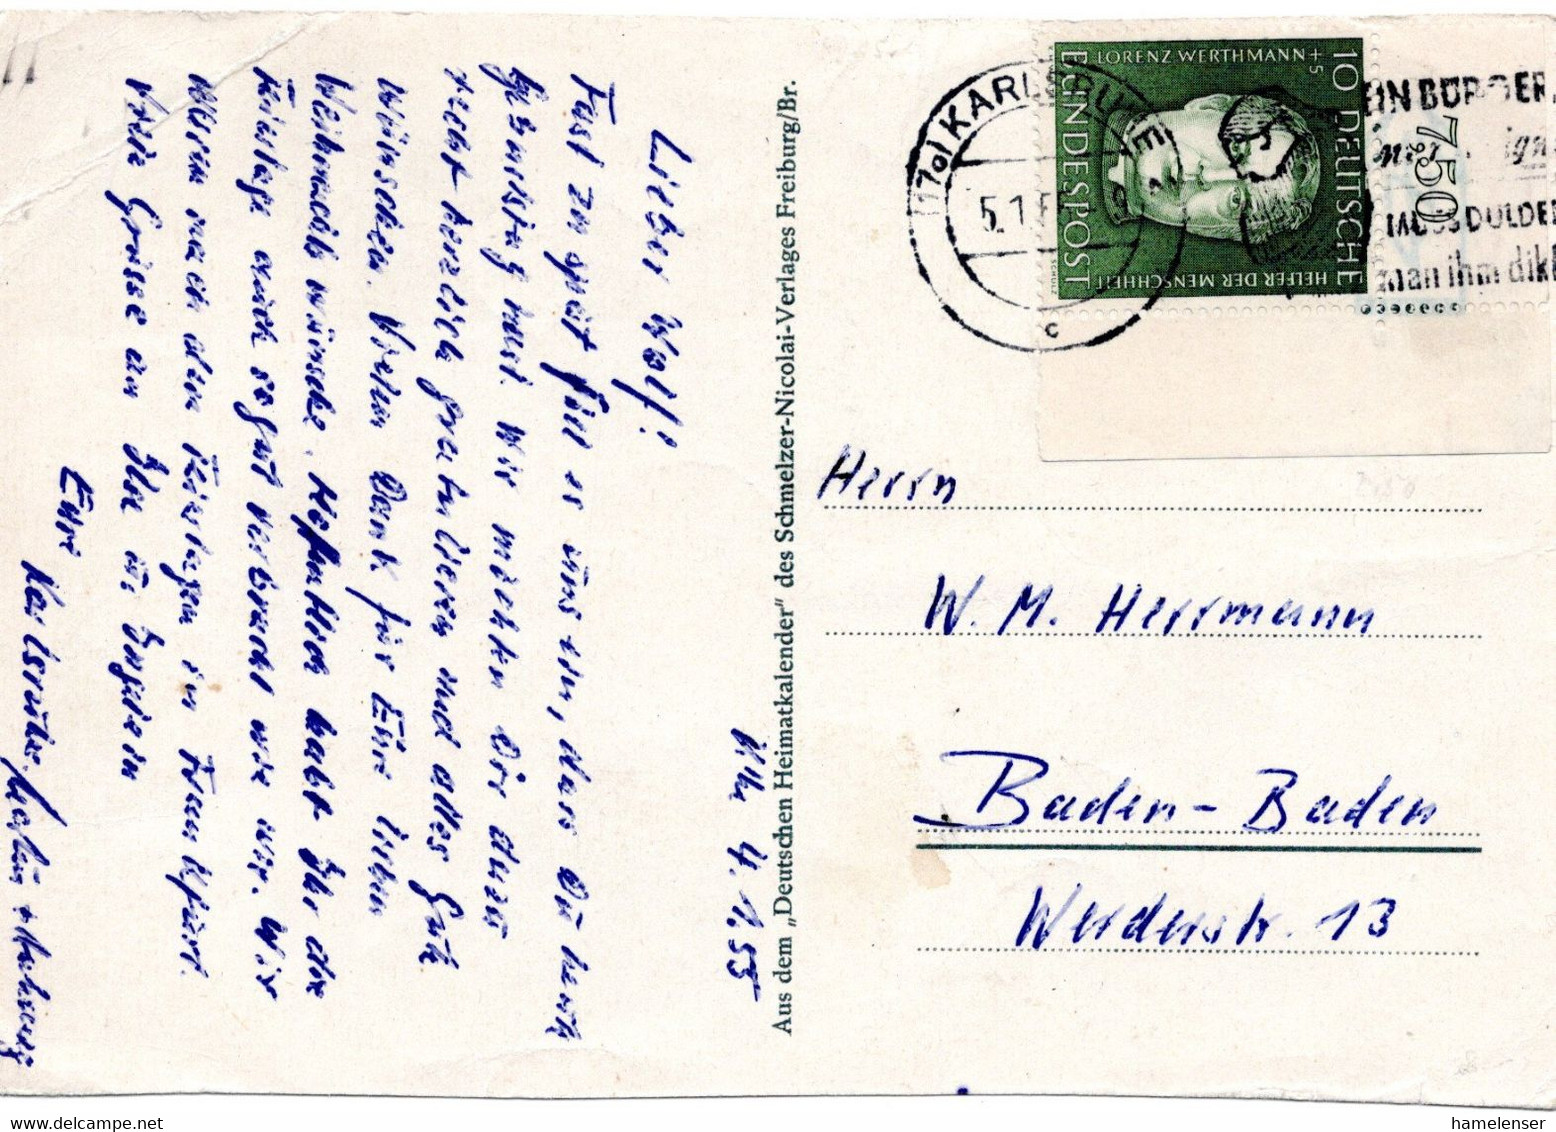 Khe 4.1.55
Lieber Wolf!
Fast zu spät fiel es uns ein, dass Du heute
Geburtstag hast. Wir möchten Dir dazu
recht herzlich gratulieren und alles Gute
wünschen. Vielen Dank für Eure lieben
Weihnachtswünsche. Hoffentlich habt Ihr die
Feiertage auch so gut verbracht wie wir. Wir
waren nach den Feiertagen in
Viele Grüsse an Ilse u.
Eure Karlsruher
Aus dem „Deutschen Heimatkalender" des Schmelzer-Nicolai-Verlages Freiburg/Br.
(17a) KARLSRUHE
5.1.5
c
10 DEUTSCHE
BUNDESPOST
LORENZ WERTHMANN +5
HELFER DER MENSCHHEIT
SCHULZ
750
EIN BÜRGER,
MUSS DULDEN
man ihm
Herrn
W. M. Herrmann
Baden-Baden
Werderstr. 13
hamelenser